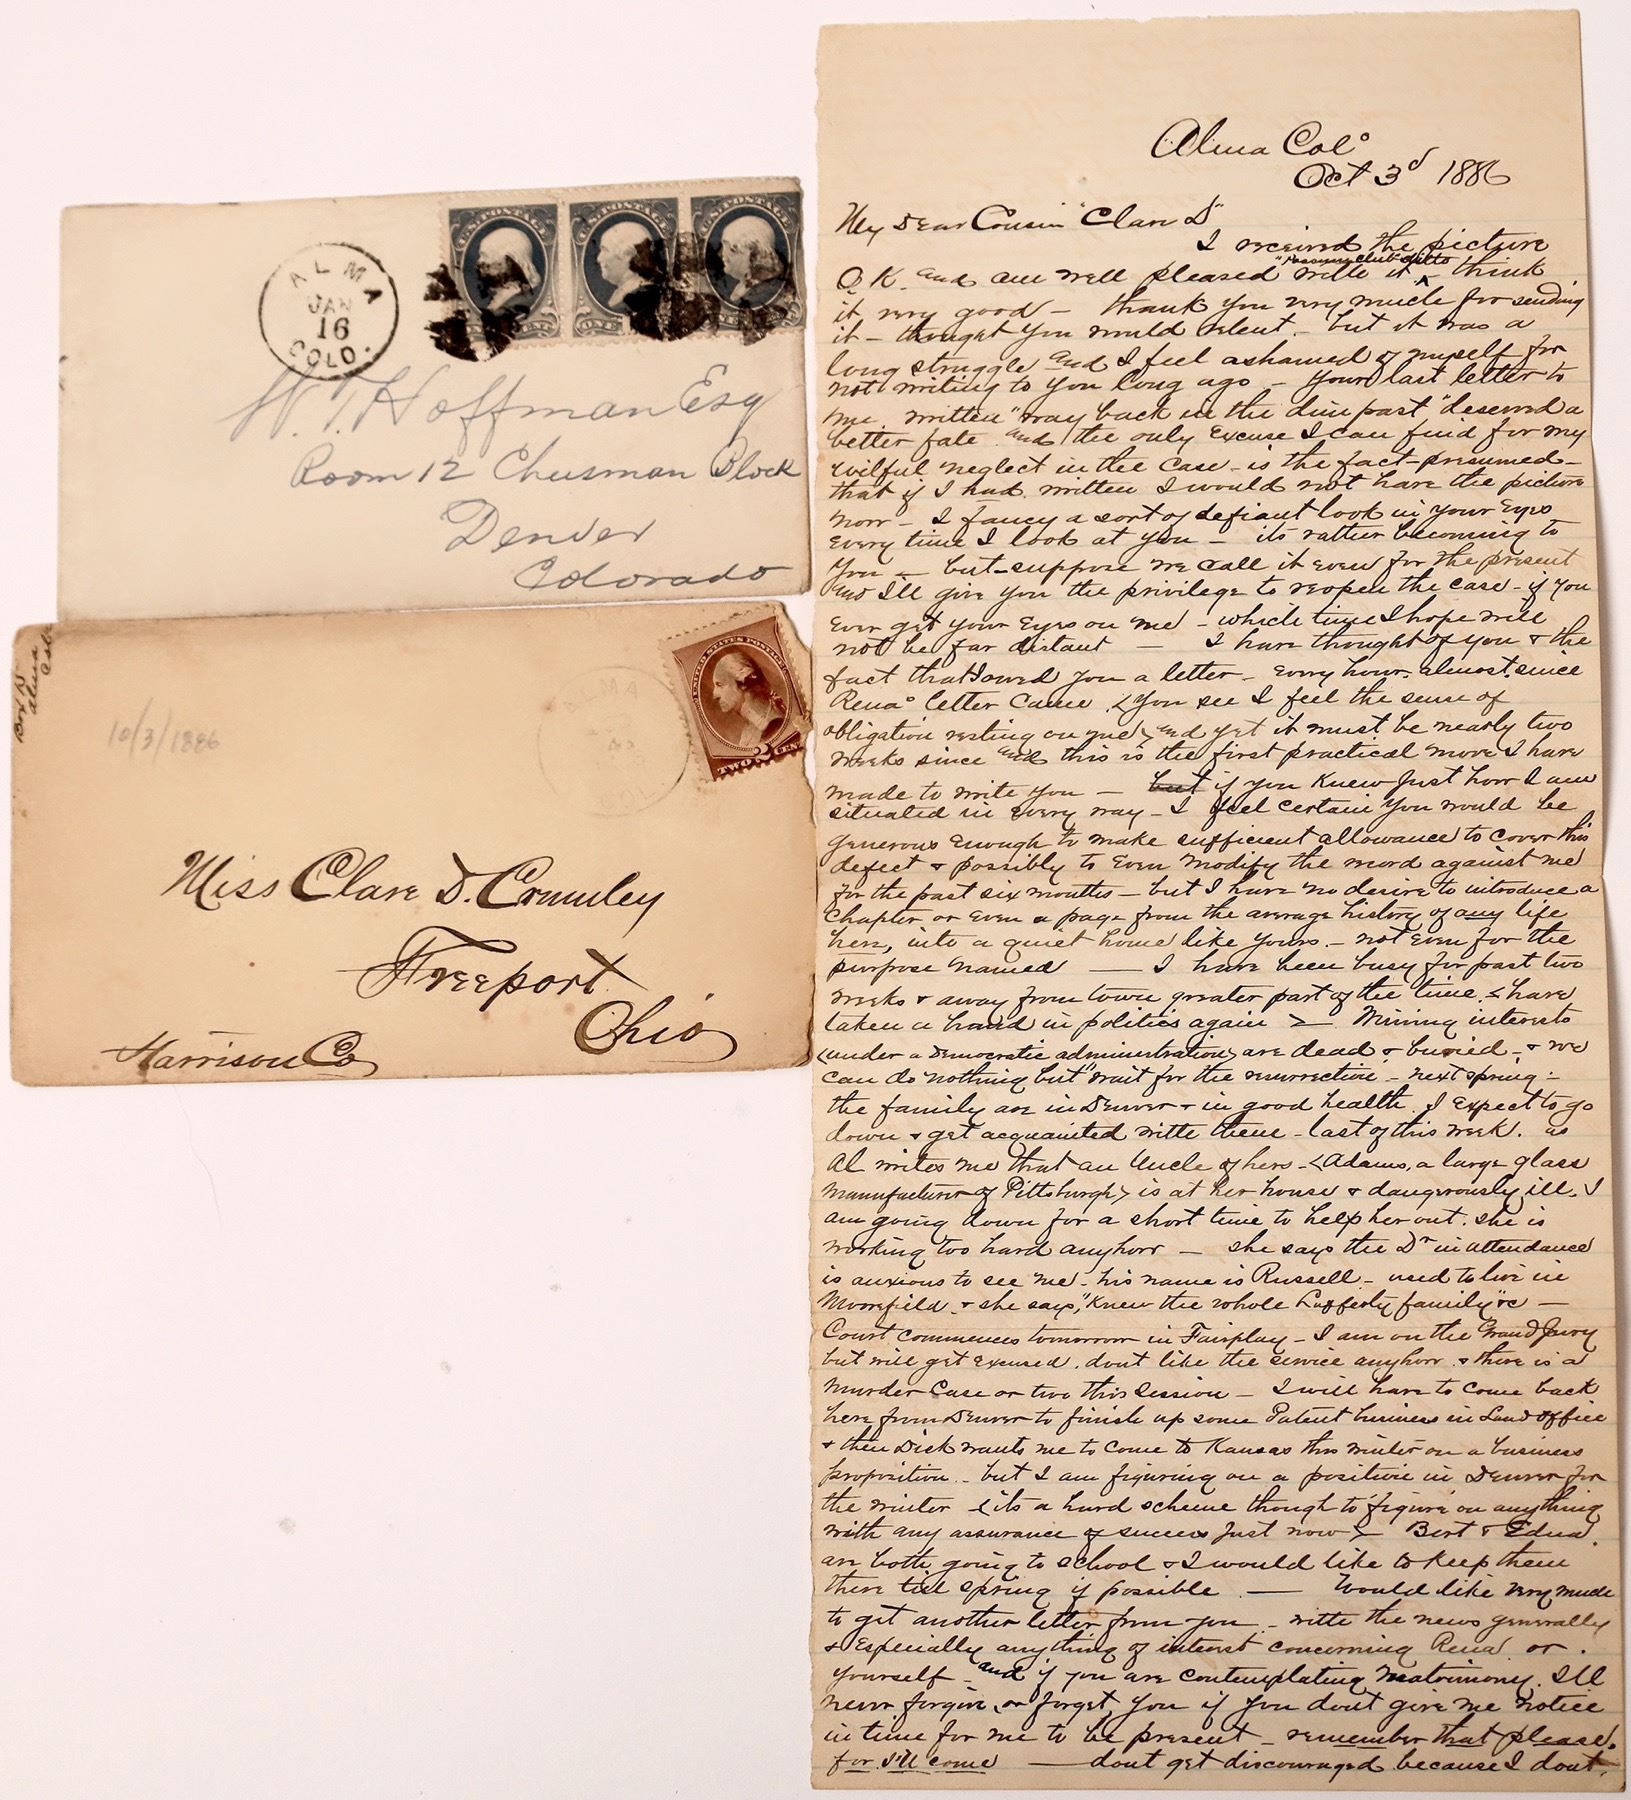 ALMA
JAN
16
COLO.
U.S. POSTAGE
U.S. POSTAGE
U.S. POSTAGE
W. T. Hoffman Esq
Room 12 Cheesman Block
Denver
Colorado
Box N
Alma
Colo
10/3/1886
UNITED STATES POSTAGE
TWO CENTS
Miss Clare D. Crumley
Freeport
Ohio
Harrison Co
Alma Colo
Oct 3d 1886
My Dear Cousin "Clare D"
I received the picture
O.K. and am well pleased with it think
it very good – thank you very much for sending
it – thought you would relent – but it was a
long struggle and I feel ashamed of myself for
not writing to you long ago – your last letter to
me written "way back in the dim past" deserved a
better fate and the only Excuse I can find for my
wilful neglect in the case – is the fact – presumed –
that if I had written I would not have the picture
now – I fancy a sort of defiant look in your Eyes
Every time I look at you – its rather becoming to
you – but suppose we call it even for the present
and I'll give you the privilege to reopen the case – if you
Ever get your Eyes on me – which time I hope will
not be far distant – I have thought of you & the
fact that I owed you a letter – Every hour almost since
Rena's letter came (you see I feel the sense of
obligation resting on me) and yet it must be nearly two
weeks since and this is the first practical move I have
made to write you – but if you knew Just how I am
situated in Every way – I feel certain you would be
generous Enough to make sufficient allowance to cover this
defect & possibly to Even modify the record against me
for the past six months – but I have no desire to introduce a
Chapter or Even a page from the average history of any life
here, into a quiet home like yours – not Even for the
purpose named — I have been busy for past two
weeks & away from town greater part of the time. (have
taken a hand in politics again) – Mining interests
(under a Democratic administration) are dead & buried – & we
can do nothing but wait for the resurrection – next spring –
the family are in Denver & in good health. I Expect to go
down & get acquainted with them – last of this week. as
Al writes me that an Uncle of hers – (Adams, a large glass
manufacturer of Pittsburgh) is at her house & dangerously ill. I
am going down for a short time to help her out. she is
working too hard anyhow – she says the Dr in attendance
is anxious to see me – his name is Russell – used to live in
Moorefield – & she says, "Knew the whole Lafferty family" &c –
Court commences tomorrow in Fairplay – I am on the Grand Jury
but will get Excused. dont like the service anyhow & there is a
Murder Case or two this Session – I will have to come back
here from Denver to finish up some Patent business in Land office
& then Dick wants me to come to Kansas this winter on a business
proposition – but I am figuring on a position in Denver for
the winter (its a hard scheme though to 'figure' on anything
with any assurance of success Just now) – Bert & Edna
are both going to school & I would like to keep them
there till spring if possible — Would like very much
to get another letter from you – with the news generally
& Especially anything of interest concerning Rena or
yourself – and if you are contemplating Matrimony. I'll
never forgive or forget you if you dont give me notice
in time for me to be present – remember that please.
for I'll come — dont get discouraged because I dont